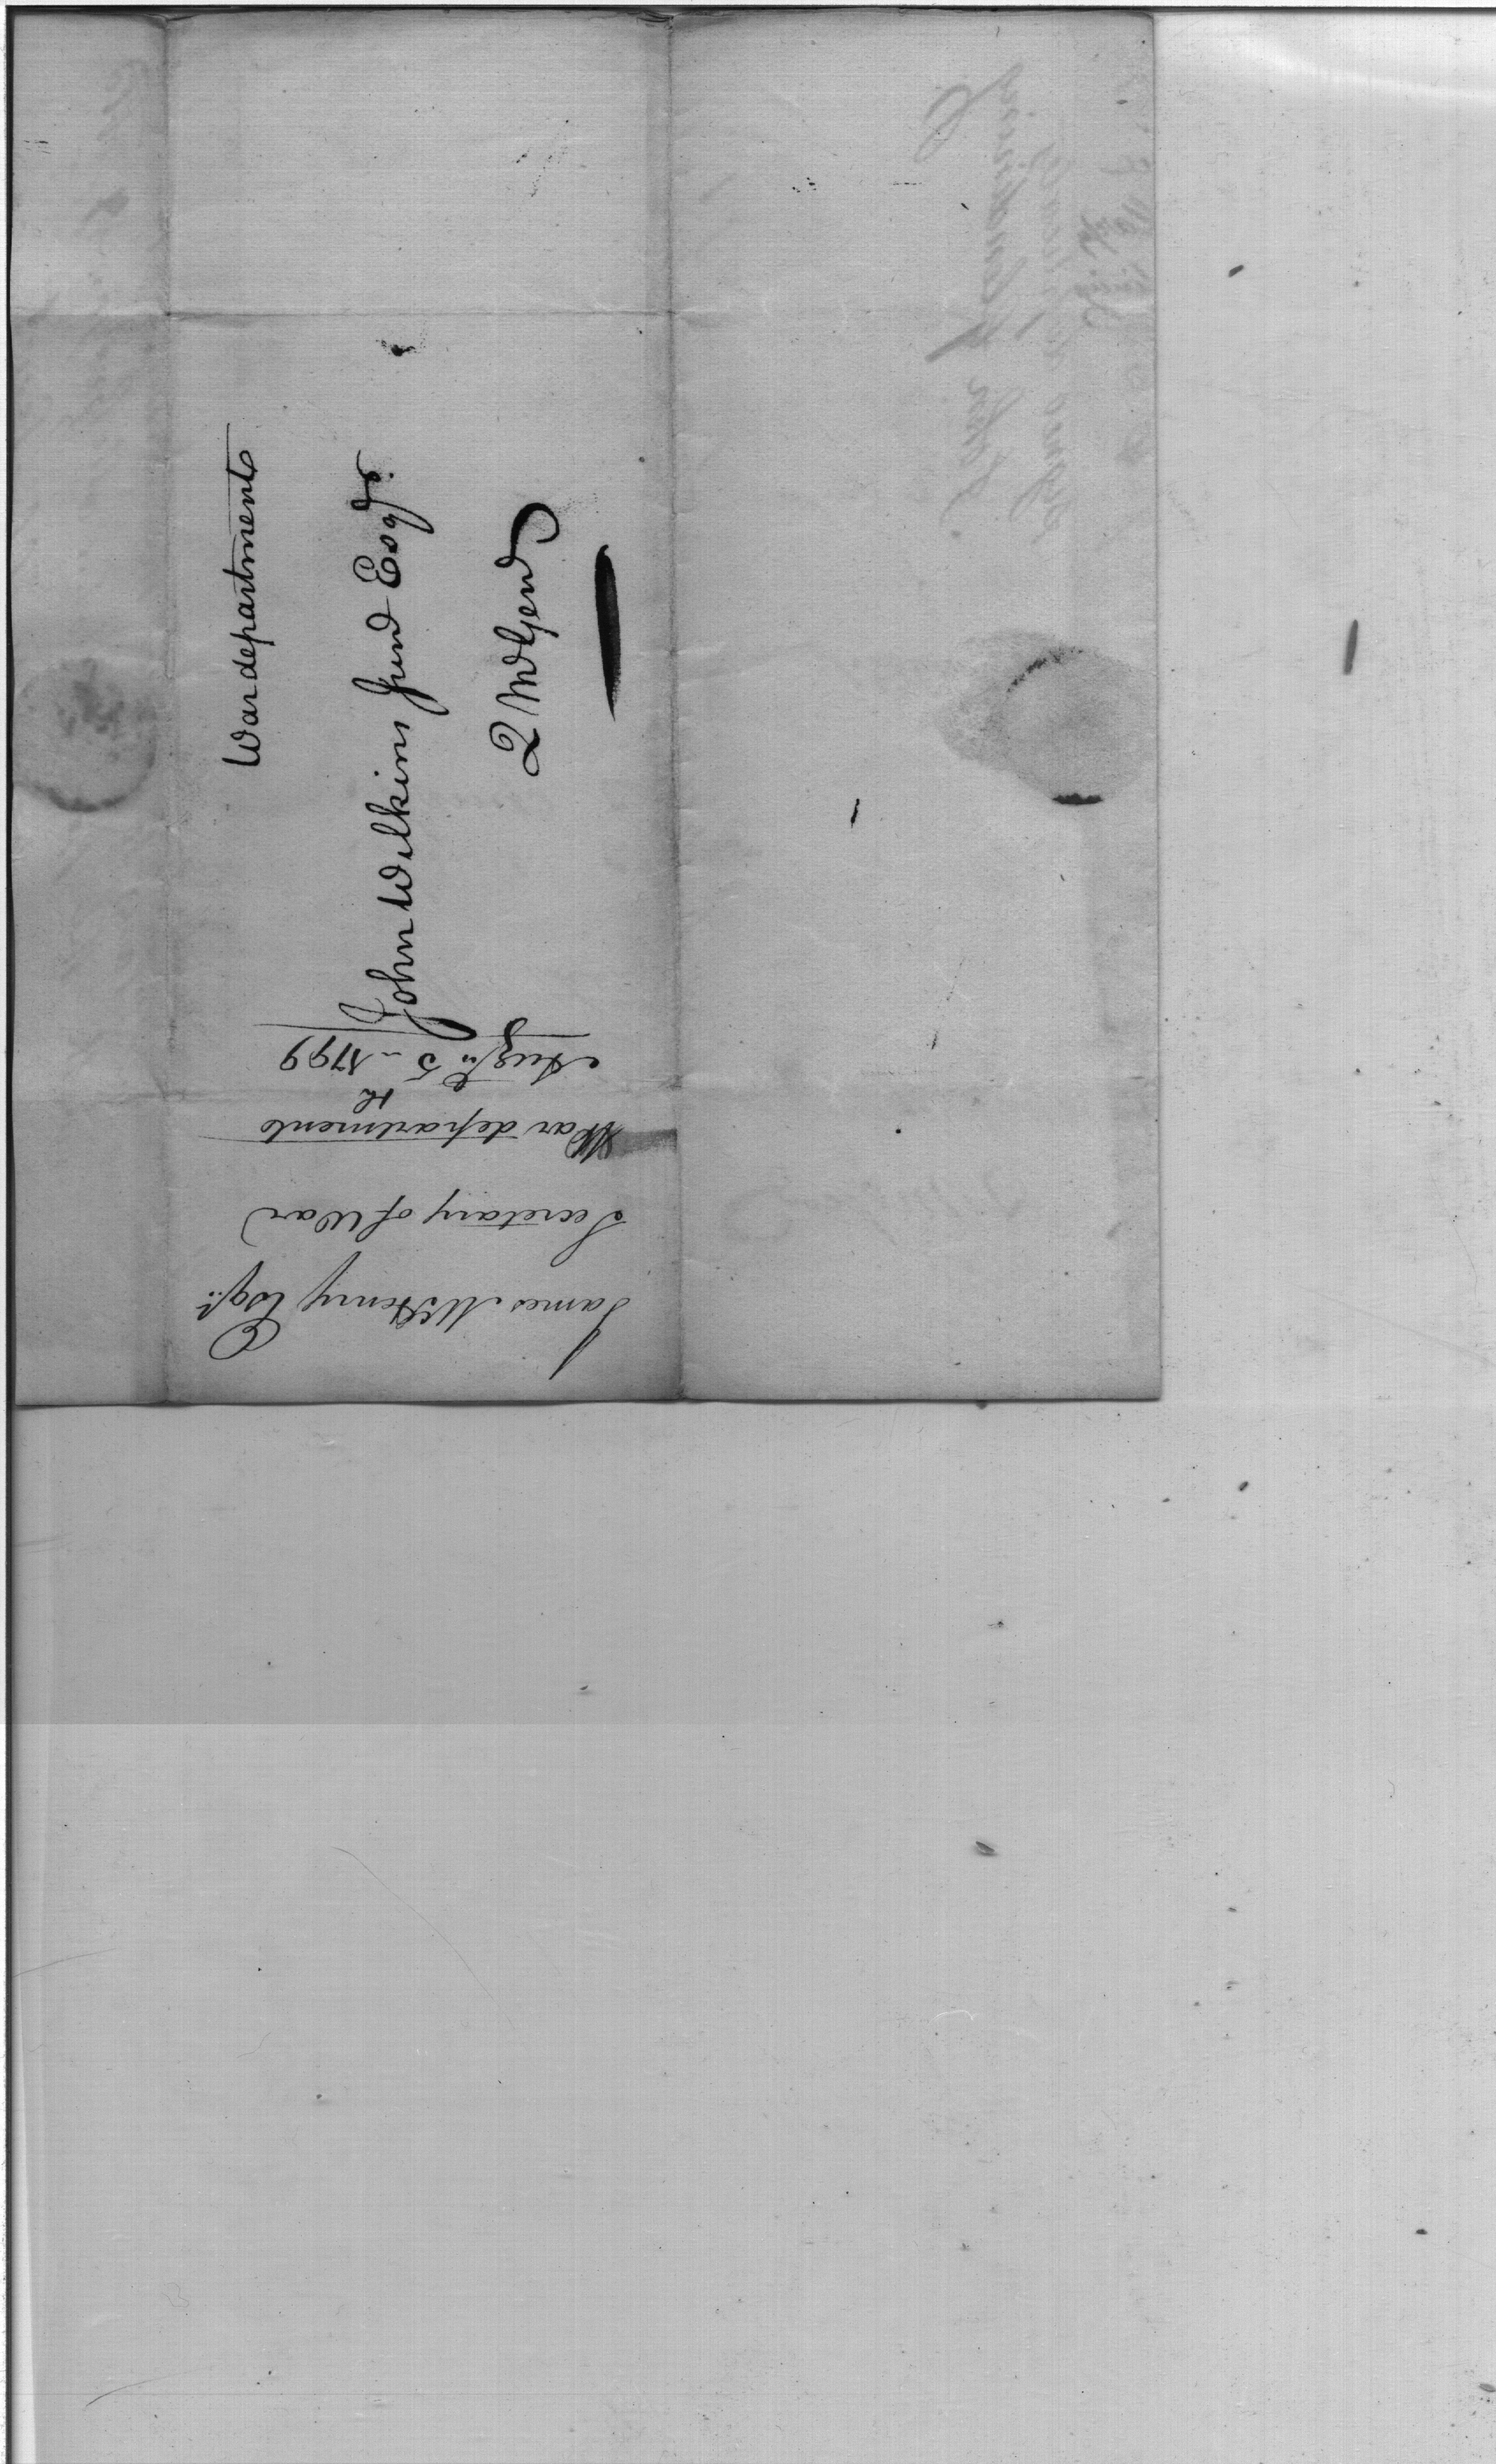 War department
John Wilkins Junr Esqr.
Q M Genl
James McHenry Esqr.
Secretary of War
War department
Augt. 5th 1799